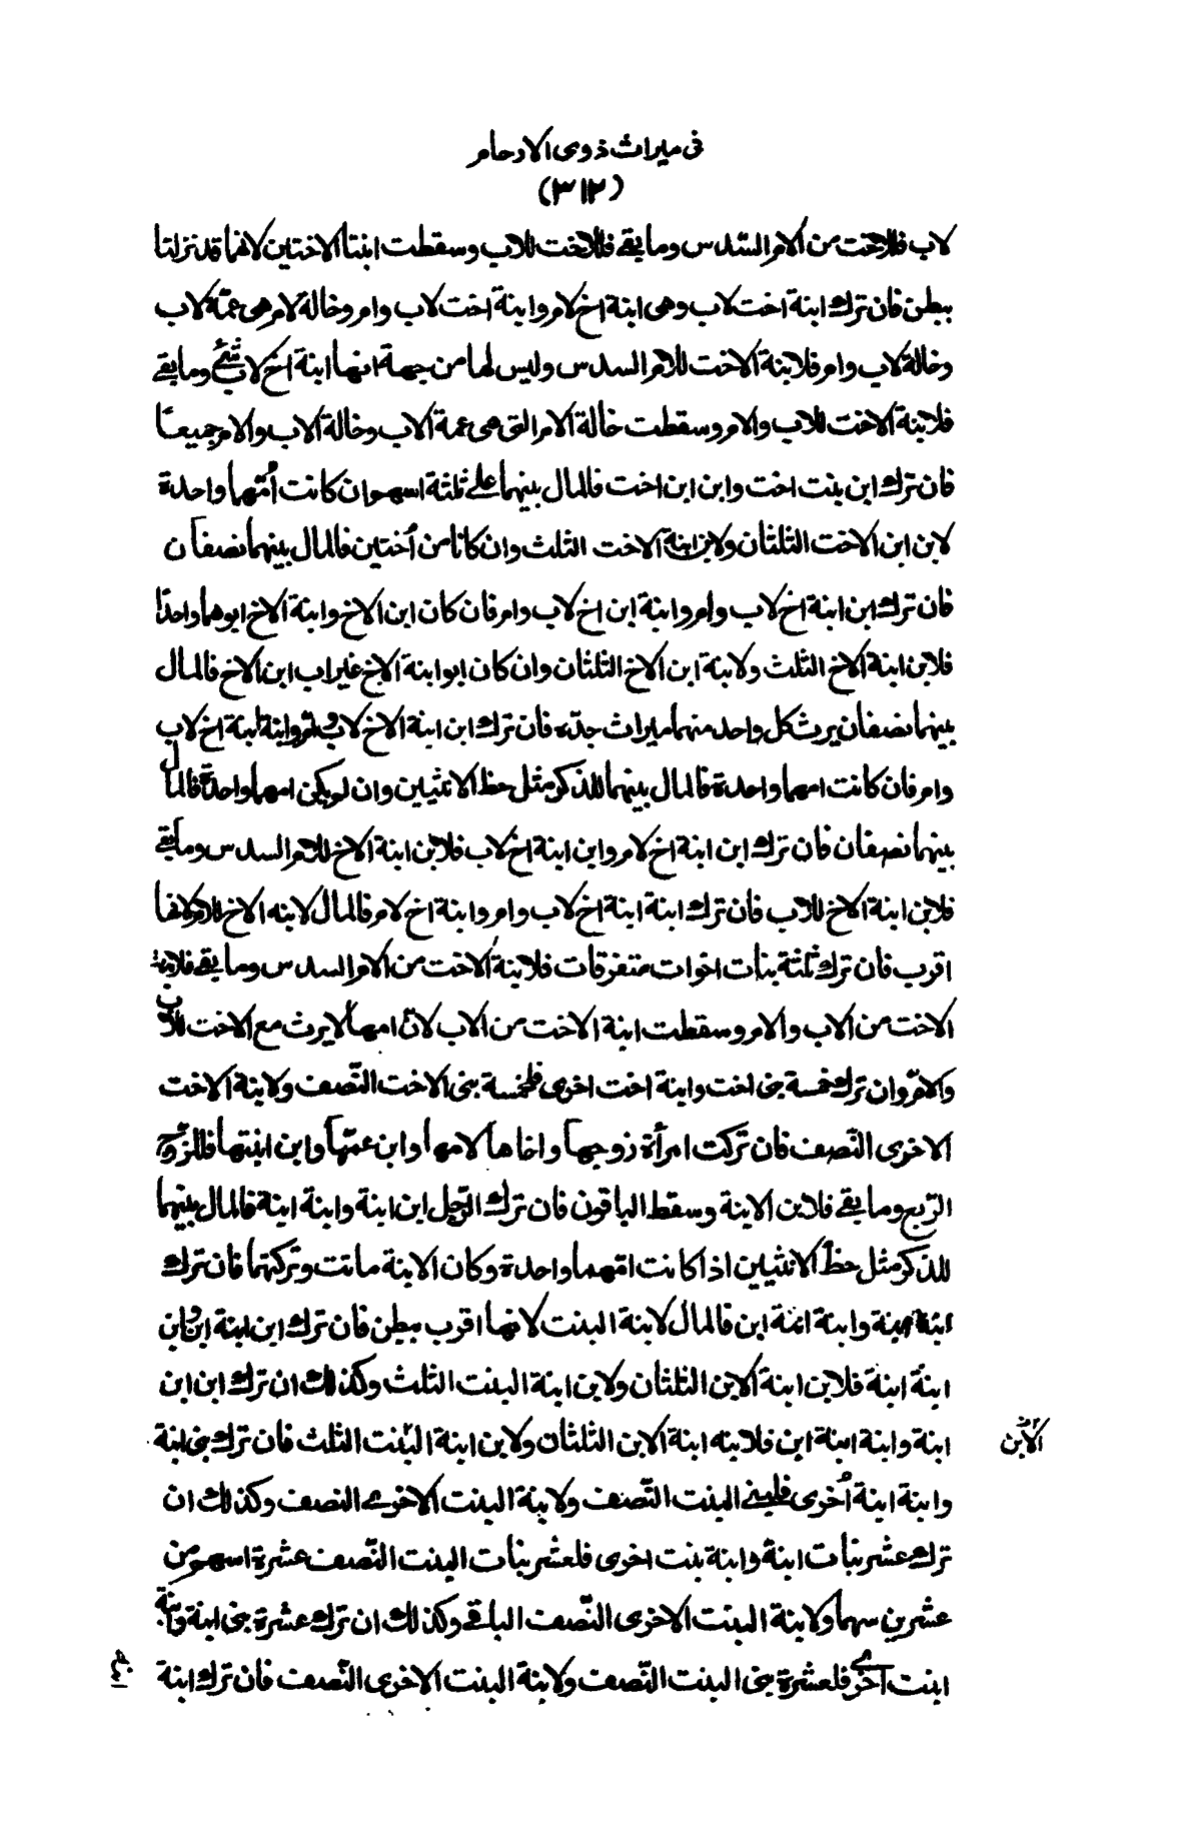 فى ميراث ذوى الارحام
(٣١٢)
لاب فللاخت من الام السّدس وما بقى فللاخت للاب وسقطت ابنتا الاختين لانهما قد نزلتا
ببطن فان ترك ابنة اخت لاب وهى ابنة اخ لام وابنة اخت لاب وام وخالة لام هى عمّة لاب
وخالة لاب وام فلابنة الاخت للام السدس وليس لها من جهة انها ابنة اخ لاب شئ وما بقى
فلابنة الاخت للاب والام وسقطت خالة الام التى هى عمة الاب وخالة الاب والام جميعًا
فان ترك ابن بنت اخت وابن ابن اخت فالمال بينهما على ثلثة اسهم وان كانت أمّهما واحدة
لابن ابن الاخت الثلثان ولابن ابنة الاخت الثلث وان كانا من أختين فالمال بينهما نصفان
فان ترك ابن ابنة اخ لاب وام وابنة ابن اخ لاب وام فان كان ابن الاخ وابنة الاخ ابوهما واحدًا
فلابن ابنة الاخ الثلث ولابنة ابن الاخ الثلثان وان كان ابو ابنة الاخ غير اب ابن الاخ فالمال
بينهما نصفان يرث كل واحد منهما ميراث جدّه فان ترك ابن ابنة الاخ لاب وام وابنة ابنة اخ لاب
وام فان كانت امهما واحدة فالمال بينهما للذكر مثل حظ الانثيين وان لم يكن امهما واحدة فالمال
بينهما نصفان فان ترك ابن ابنة اخ لام وابن ابنة اخ لاب فلابن ابنة الاخ للام السدس وما بقى
فلابن ابنة الاخ للاب فان ترك ابنة ابنة اخ لاب وام وابنة اخ لام فالمال لابنه الاخ للام لانها
اقرب فان ترك ثلثة بنات اخوات متفرقات فلابنة الاخت من الام السدس وما بقى فلابنة
الاخت من الاب والام وسقطت ابنة الاخت من الاب لانّ امها لا يرث مع الاخت للاب
والامّ وان ترك خمسة بنى اخت وابنة اخت اخرى فلخمسة بنى الاخت النّصف ولابنة الاخت
الاخرى النّصف فان تركت امرأة زوجها واخاها لامها وابن عمّها وابن ابنتها فللزّوج
الرّبع وما بقى فلابن الابنة وسقط الباقون فان ترك الرّجل ابن ابنة وابنة ابنة فالمال بينهما
للذكر مثل حظّ الانثيين اذا كانت امّهما واحدة وكان الابنة ماتت وتركتهما فان ترك
ابنة ابنة وابنة ابنة ابن فالمال لابنة البنت لانها اقرب ببطن فان ترك ابن ابنة ابن وابن
ابنة ابنة فلابن ابنة الابن الثلثان ولابن ابنة البنت الثلث وكذلك ان ترك ابن ابن
ابنة وابنة ابنة ابن فلابنه ابنة الابن الثلثان ولابن ابنة البنت الثلث فان ترك بنى ابنة
الابن
وابنة ابنة أخرى فلبنى البنت النّصف ولابنة البنت الاخرى النصف وكذلك ان
ترك عشر بنات ابنة وابنة بنت اخرى فلعشر بنات البنت النّصف عشرة اسهم من
عشرين سهما ولابنة البنت الاخرى النّصف الباقى وكذلك ان ترك عشرة بنى ابنة وابنة
ابنت اخرى فلعشرة بنى البنت النّصف ولابنة البنت الاخرى النّصف فان ترك ابنة